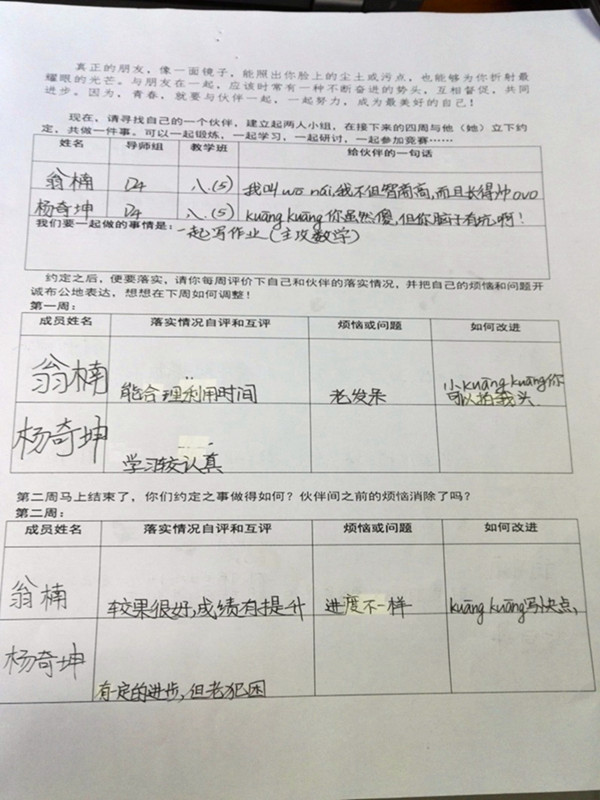 真正的朋友，像一面镜子，能照出你脸上的尘土或污点，也能够为你折射最
耀眼的光芒。与朋友在一起，应该时常有一种不断奋进的势头，互相督促，共同
进步。因为，青春，就要与伙伴一起，一起努力，成为最美好的自己！
现在，请寻找自己的一个伙伴，建立起两人小组，在接下来的四周与他（她）立下约
定，共做一件事。可以一起锻炼，一起学习，一起研讨，一起参加竞赛……
姓名 导师组 教学班 给伙伴的一句话
翁楠 D4 八.(5) 我叫wō nái,我不但智商高,而且长得帅ovo
杨奇坤 D4 八.(5) kuāng kuāng你虽然傻,但你脑子有坑啊！
我们要一起做的事情是：一起写作业(主攻数学)
约定之后，便要落实，请你每周评价下自己和伙伴的落实情况，并把自己的烦恼和问题开
诚布公地表达，想想在下周如何调整！
第一周：
成员姓名 落实情况自评和互评 烦恼或问题 如何改进
翁楠 能合理利用时间 老发呆 小kuāng kuāng你
可以拍我头
杨奇坤 学习较认真
第二周马上结束了，你们约定之事做得如何？伙伴间之前的烦恼消除了吗？
第二周：
成员姓名 落实情况自评和互评 烦恼或问题 如何改进
翁楠 较果很好,成绩有提升 进度不一样 kuāng kuāng写快点,
杨奇坤 有一定的进步,但老犯困